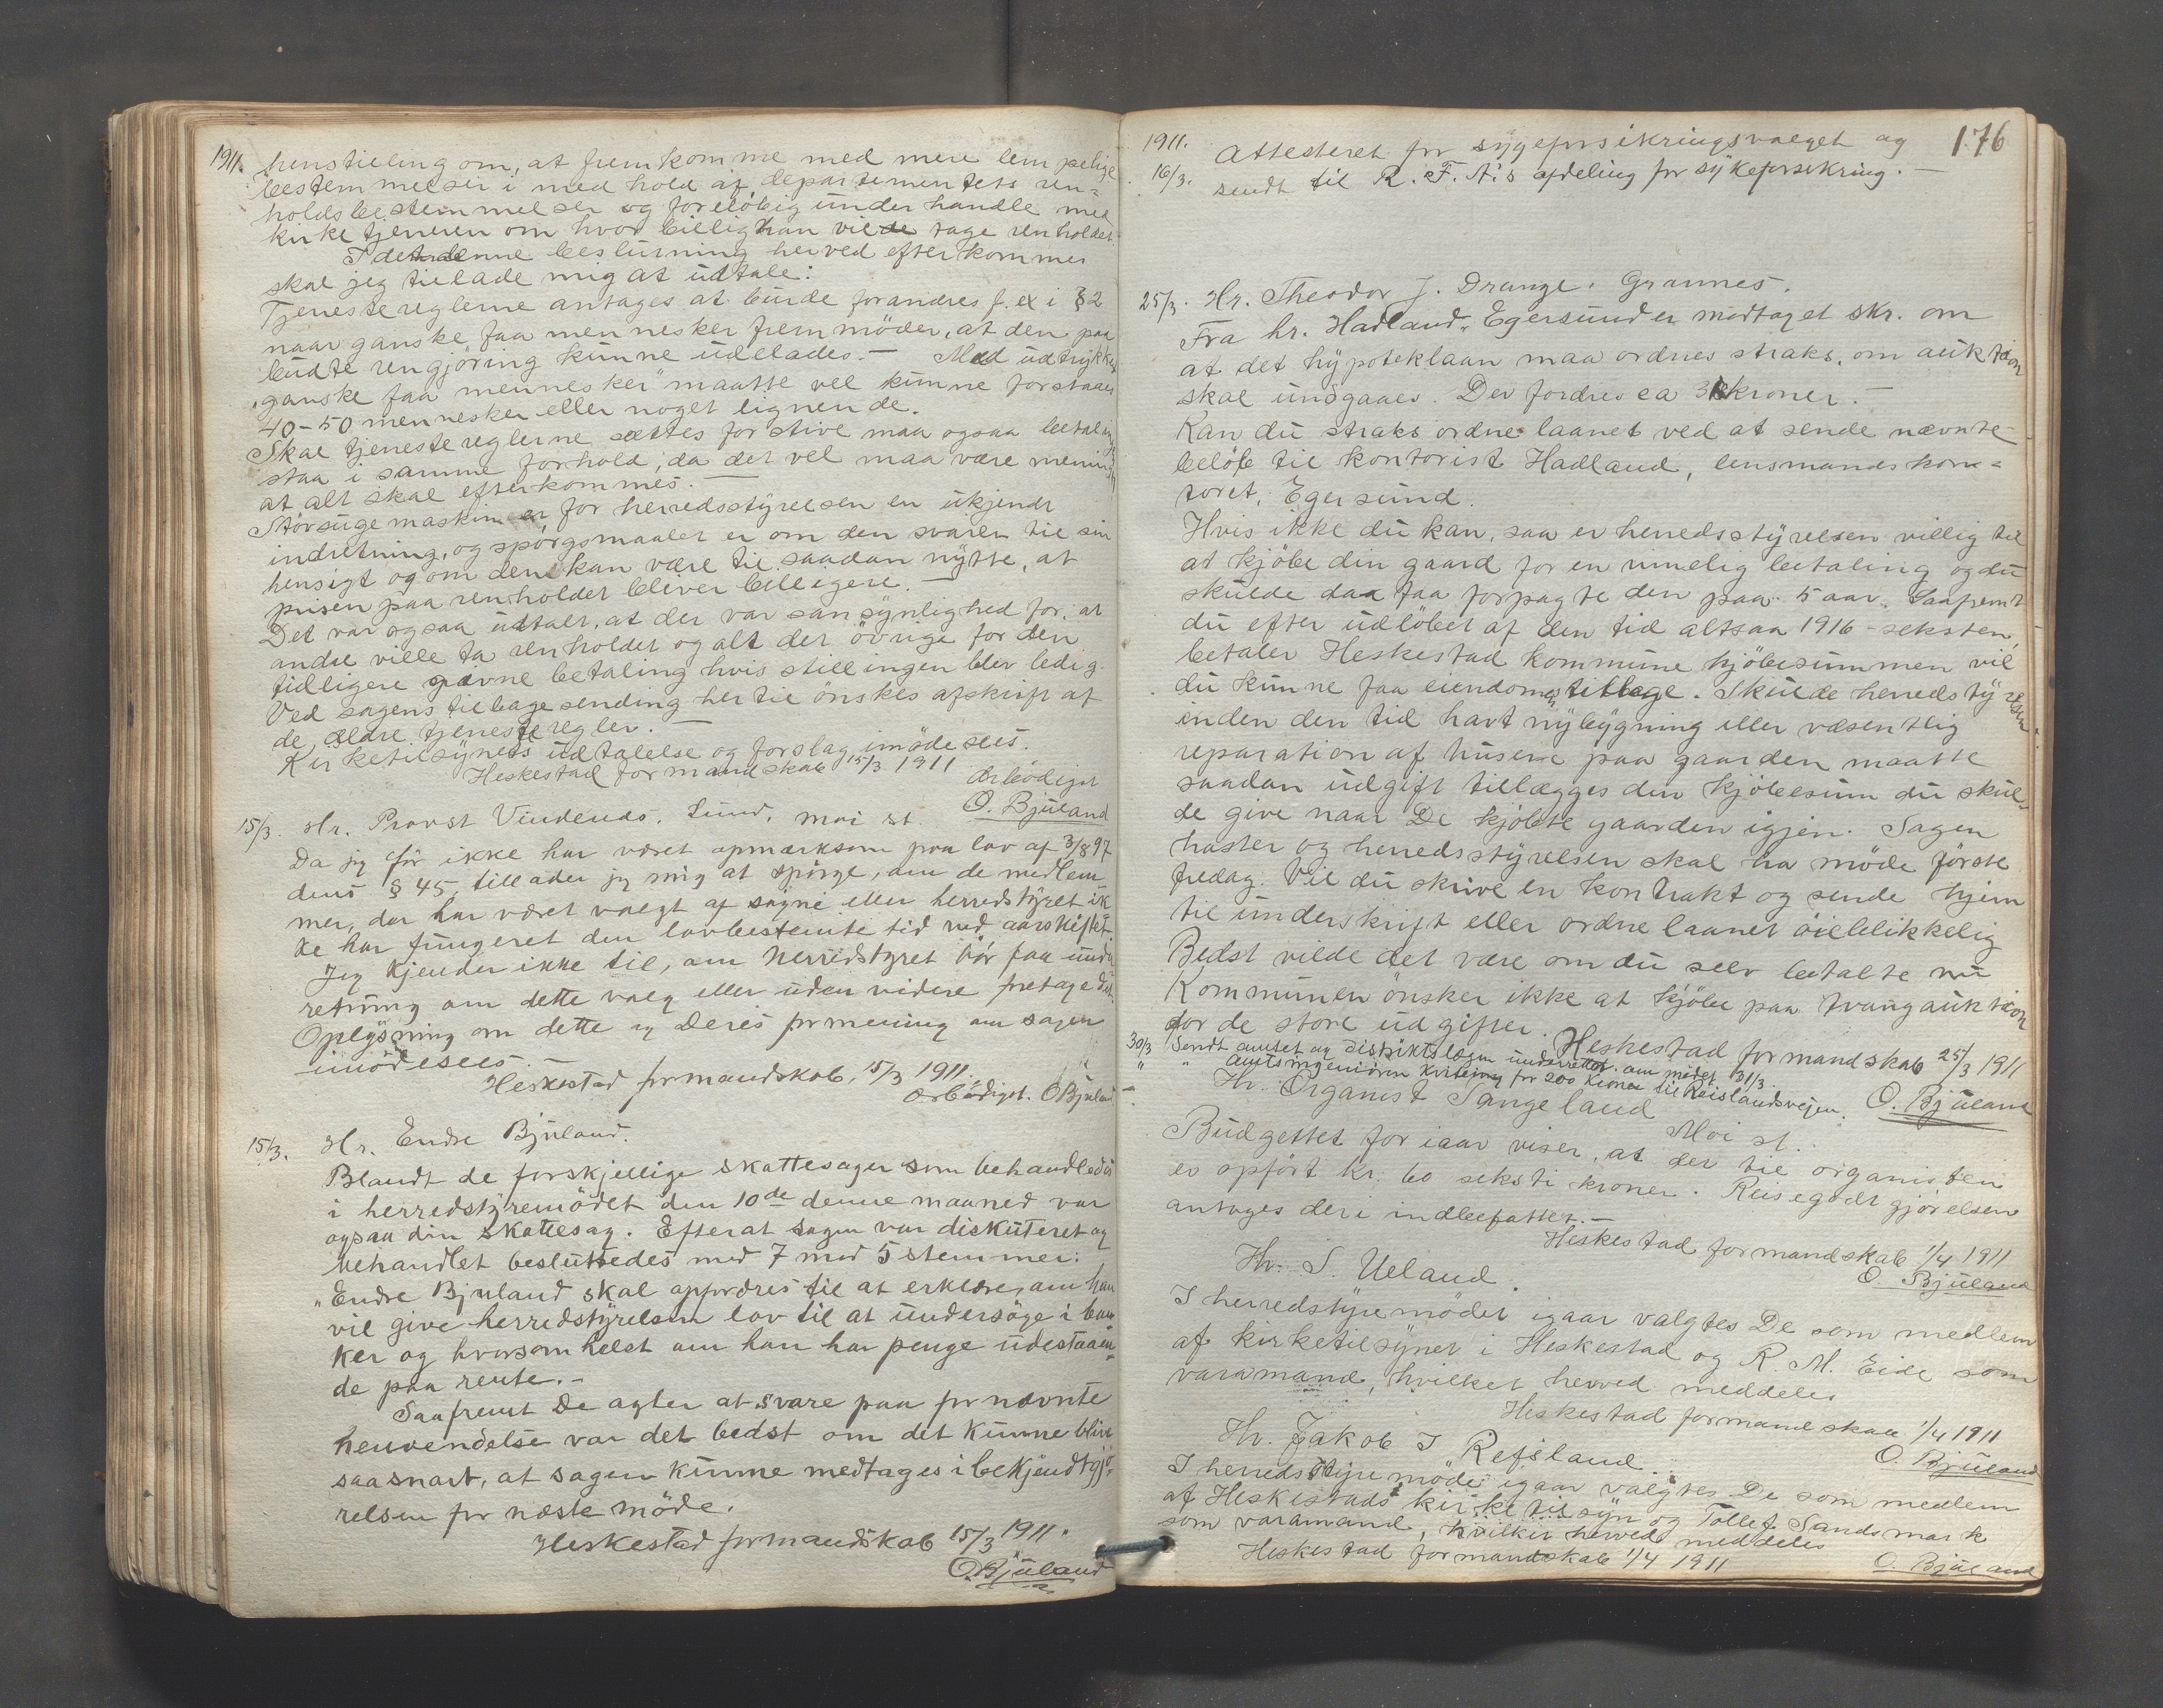 1911. henstilling om, at fremkomme med mere lempelige
bestemmelser i medhold af departementets ren=
holdsbestemmelser og foreløbig underhandle med
kirketjeneren om hvor billig han vilde tage renholdet.
Idet denne beslutning herved efterkommes
skal jeg tillade mig at udtale:
Tjenestereglerne antages at burde forandres f. ex i § 2
naar ganske faa mennesker fremmöder, at den paa
budte rengjöring kunne udelades. — Med udtrykket
"ganske faa mennesker" maatte vel kunne forstaaes
40-50 mennesker eller noget lignende.
Skal tjenestereglerne sættes for stive maa ogsaa betaling
staa i samme forhold, da det vel maa være mening
at alt skal efterkommes. —
Störsugemaskin er for herredsstyrelsen en ukjendt
indretning, og spörgsmaalet er om den svarer til sin
hensigt og om den kan være til saadan nytte, at
prisen paa renholdet bliver billigere. —
Det var ogsaa udtalt, at der var sansynlighed for, at
andre ville ta renholdet og alt det övrige for den
tidligere gavne betaling hvis stillingen blev ledig.
Ved sagens tilbagesending hertil önskes afskrift af
de ældre tjenesteregler. —
Kirketilsynets udtalelse og forslag imödesees.
Heskestad formandskab 15/3 1911
Ærbödigst
O. Bjuland
15/3. Hr. Provst Vindenes, Lund, Moi st.
Da jeg för ikke har været opmærksom paa lov af 3/8 97
dens § 45, tillader jeg mig at spörge, om de medlem
mer, der har været valgt af sogne eller herredstyret ik
ke har fungeret den lovbestemte tid ved aarskiftet.
Jeg kjender ikke til, om herredstyret bör faa under
retning om dette valg eller uden videre foretage det.
Oplysning om dette og Deres formening om sagen
imödesees. —
Heskestad formandskab, 15/3 1911.
Ærbödigst. O Bjuland
15/3. Hr. Endre Bjuland.
Blandt de forskjellige skattesager som behandledes
i herredstyremödet den 10de denne maaned var
ogsaa din skattesag. Efterat sagen var diskuteret og
behandlet besluttedes med 7 mod 5 stemmer:
"Endre Bjuland skal opfordres til at erklære, om han
vil give herredstyrelsen lov til at undersöge i ban
ker og hvorsomhelst om han har penge udestaaen=
de paa rente. —
Saafremt De agter at svare paa fornævnte
henvendelse var det bedst om det kunne blive
saa snart, at sagen kunne medtages i bekjendtgjö=
relsen for næste möde.
Heskestad formandskab 15/3 1911.
O. Bjuland
176
1911.
16/3. Attesteret for sygeforsikringsvalget og
sendt til R. F. A's afdeling for sykeforsikring. —
25/3. Hr. Theodor J. Drange. Grannes.
Fra hr. Hadland, Egersund er modtaget skr. om
at det hypoteklaan maa ordnes straks, om auktion
skal undgaaes. Der fordres ca 31 kroner. —
Kan du straks ordne laanet ved at sende nævnte
belöb til kontorist Hadland, lensmandskon=
toret, Egersund.
Hvis ikke du kan, saa er herredsstyrelsen villig til
at kjöbe din gaard for en rimelig betaling og du
skulde da faa forpagte den paa 5 aar. Saafremt
du efter udlöbet af den tid altsaa 1916 - seksten,
betaler Heskestad kommune kjöbesummen vil
du kunne faa eiendommen tilbage. Skulde herredstyrelsen
inden den tid havt nybygning eller væsentlig
reparation af husene paa gaarden maatte
saadan udgift tillægges den kjöbesum du skul=
de give naar De kjöbte gaarden igjen. Sagen
haster og herredsstyrelsen skal ha möde förste
fredag. Vil du skrive en kontrakt og sende hjem
til underskrift eller ordne laanet öieblikkelig
Bedst vilde det være om du selv betalte nu
Kommunen önsker ikke at kjöbe paa tvangauktion
for de store udgifter.
Heskestad formandskab 25/3 1911
O. Bjuland
30/3 Sendt amtet og distriktslægen underrettet om mödet 31/3.
" " Amtsingeniören kvitering for 200 kroner til Reislandsvejen.
Hr. Organist Sangeland
Moi st.
Budgettet for iaar viser, at der til organisten
er opfört kr. 60 seksti kroner. Reisegodtgjörelsen
antages deri indbefattet. —
Heskestad formandskab 1/4 1911
O. Bjuland
Hr. S. Ueland.
I herredstyremödet igaar valgtes De som medlem
af kirketilsynet i Heskestad og R. M. Eide som
varamand, hvilket herved meddeles
Heskestad formandskab 1/4 1911
O. Bjuland
Hr. Jakob I Refsland
I herredstyremöde igaar valgtes De som medlem
af Heskestads kirketilsyn og Tollef Sandsmark
som varamand, hvilket herved meddeles
Heskestad formandskab 1/4 1911
O. Bjuland